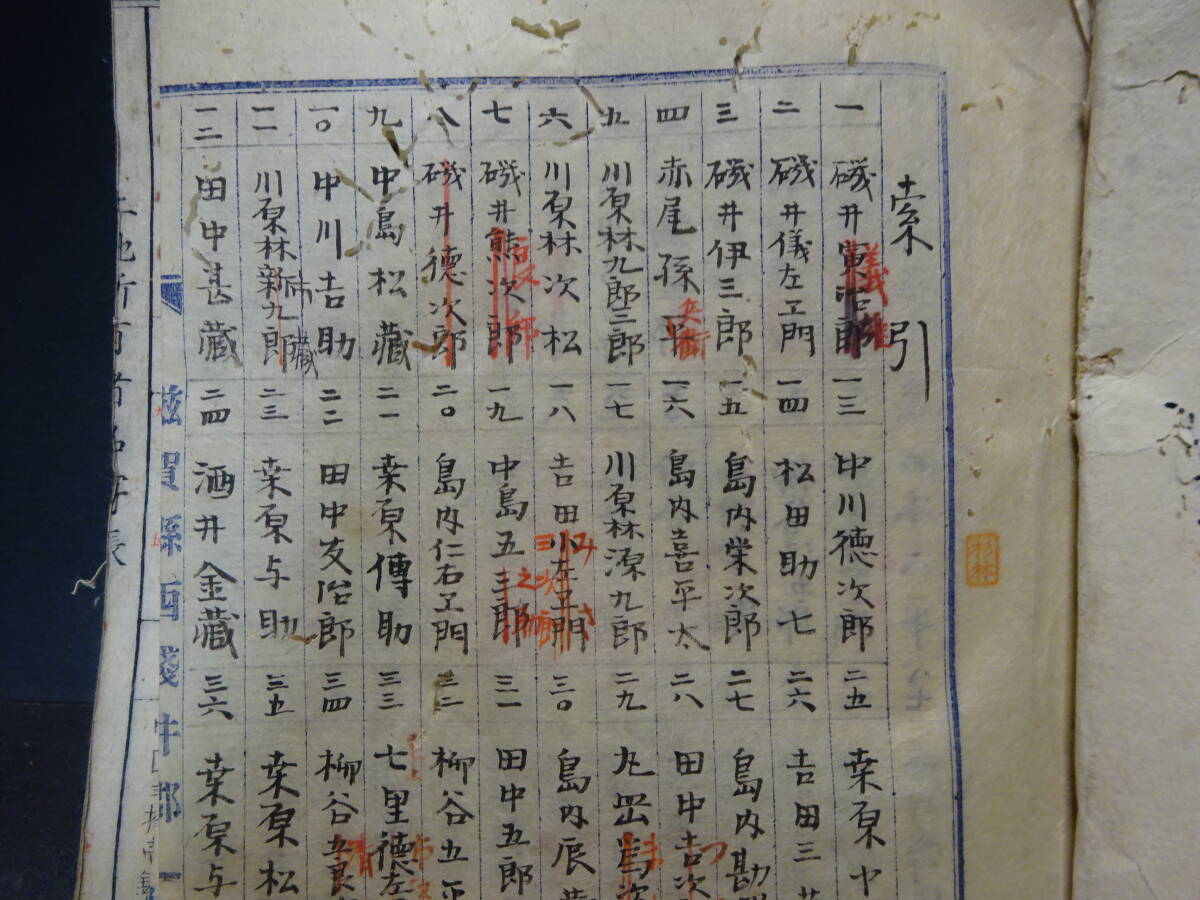 索引
一 磯井寅吉郎 義雄
二 磯井儀左エ門
三 磯井伊三郎
四 赤尾孫平 兵衛
五 川原林九郎三郎
六 川原林次松
七 磯井熊次郎
八 磯井德次郎
九 中島松藏
一〇 中川吉助
一一 川原林新九郎 市藏
一二 田中甚藏
一三 中川德次郎
一四 松田助七
一五 島内栄次郎
一六 島内喜平太
一七 川原林源九郎
一八 吉田小左エ門
一九 中島五三郎
二〇 島内仁右エ門
二一 桒原傳助
二二 田中友治郎
二三 桒原与助
二四 酒井金藏
二五 桒原
二六 吉田三
二七 島内勘
二八 田中吉次
二九
三〇 島内辰
三一 田中五郎
三二 柳谷五平
三三 七里德左
三四 柳谷
三五 桒原松
三六 桒原与
滋賀縣西淺井郡
杉林